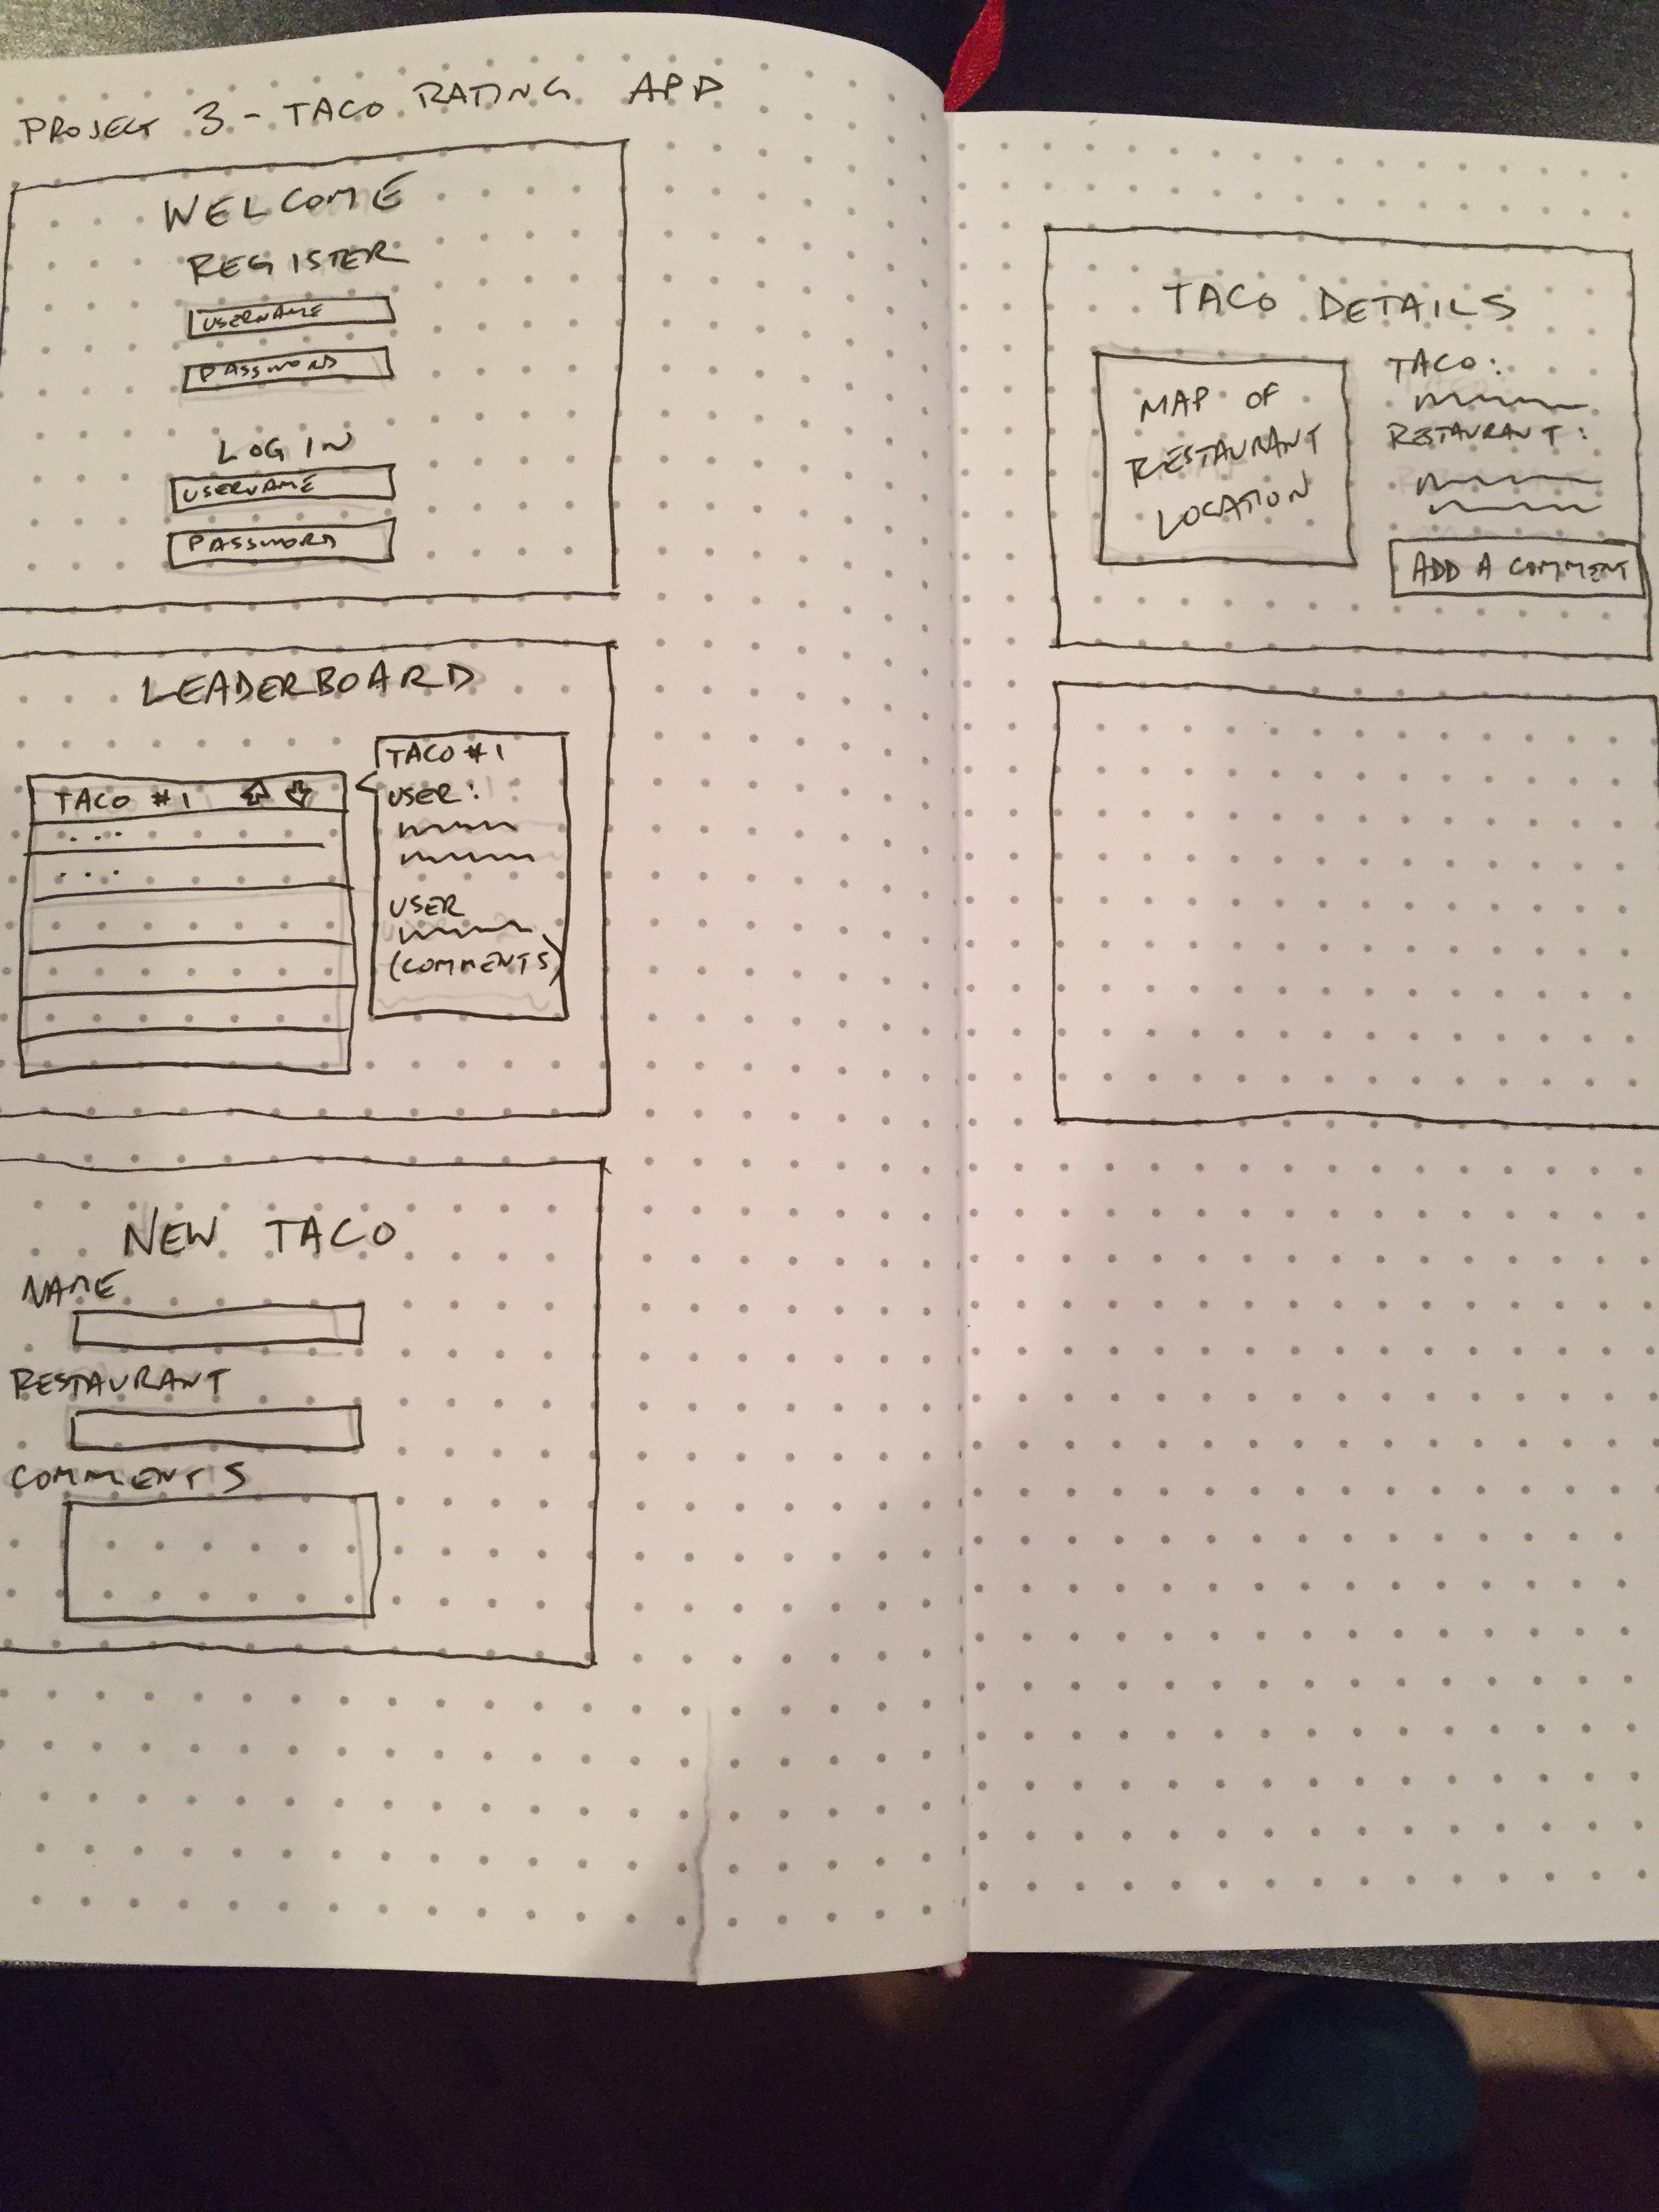 PROJECT 3 - TACO RATING APP
WELCOME
REGISTER
USERNAME
PASSWORD
LOG IN
USERNAME
PASSWORD
LEADERBOARD
TACO #1
...
...
TACO #1
USER:
USER
(COMMENTS)
NEW TACO
NAME
RESTAURANT
COMMENTS
TACO DETAILS
MAP OF
RESTAURANT
LOCATION
TACO:
RESTAURANT:
ADD A COMMENT